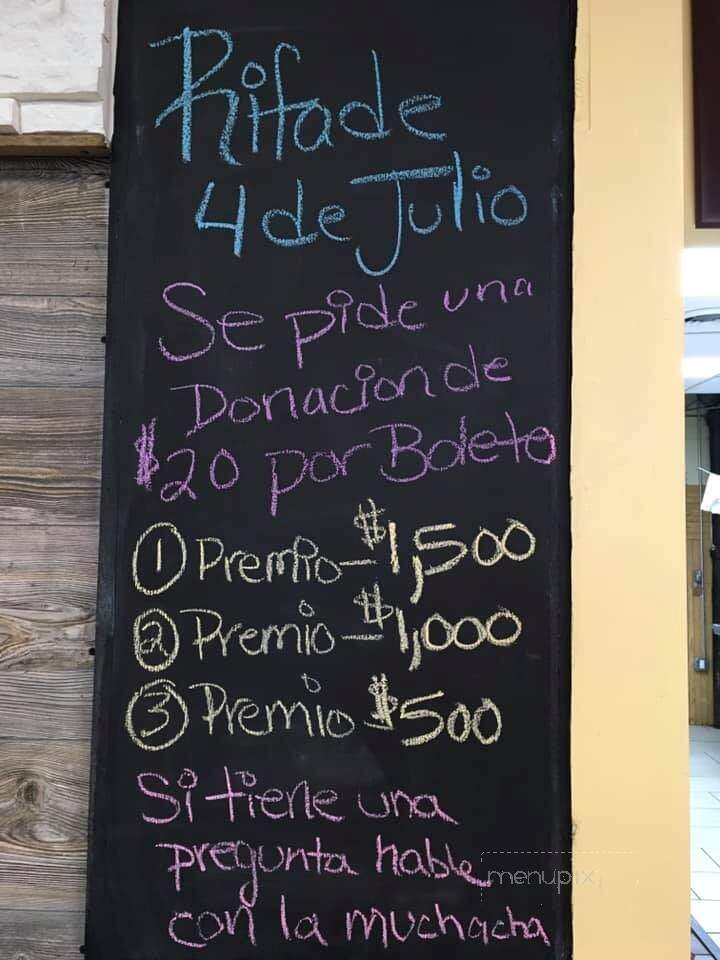 Rifa de
4 de Julio
Se pide una
Donacion de
$20 por Boleto
1 Premio - $1,500
2 Premio - $1,000
3 Premio $500
Si tiene una
pregunta hable
con la muchacha
menupix